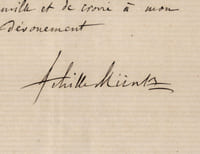 mille et de croire à mon
dévouement
Achille Müntz